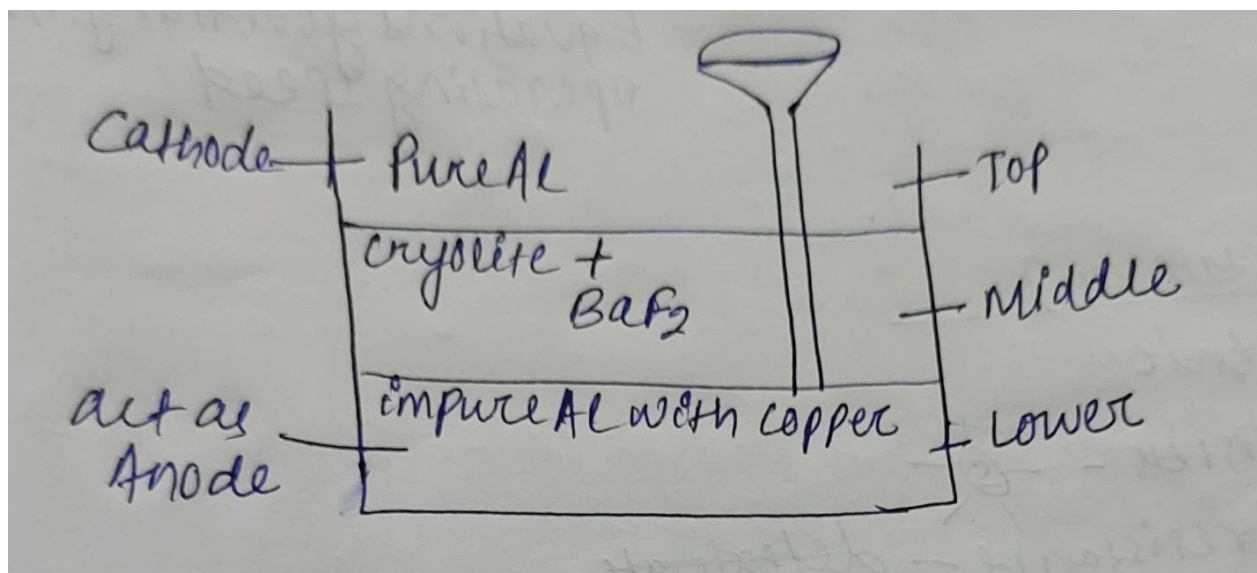 Cathode
Pure Al
Top
Cryolite +
BaF2
Middle
act as
Anode
impure Al with copper
Lower